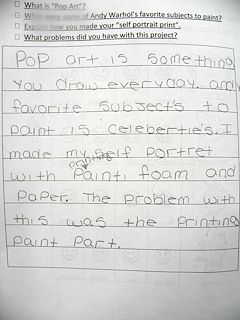 What is "Pop Art"?
What were some of Andy Warhol's favorite subjects to paint?
Explain how you made your "self portrait print".
What problems did you have with this project?
Pop art is something
you draw everyday. and
favorite subjects to
paint is celeberties. I
made my self portret
printing
with paint, foam and
paper. The problem with
this was the printing
paint part.